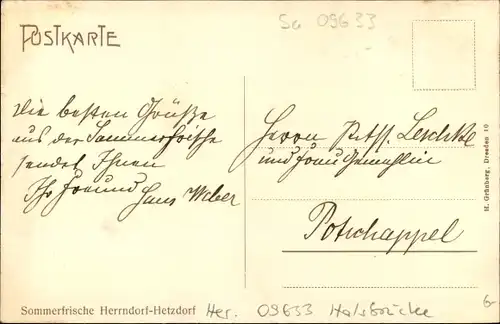 Sa 09633
POSTKARTE
Die besten Grüße
aus der Sommerfrische
sendet Ihnen
Ihr Freund Hans Weber
Herrn
und Frau Gemahlin
Potschappel
M. Grünberg, Dresden 10
Sommerfrische Herrndorf-Hetzdorf
Her. 09633 Halsbrücke
6-